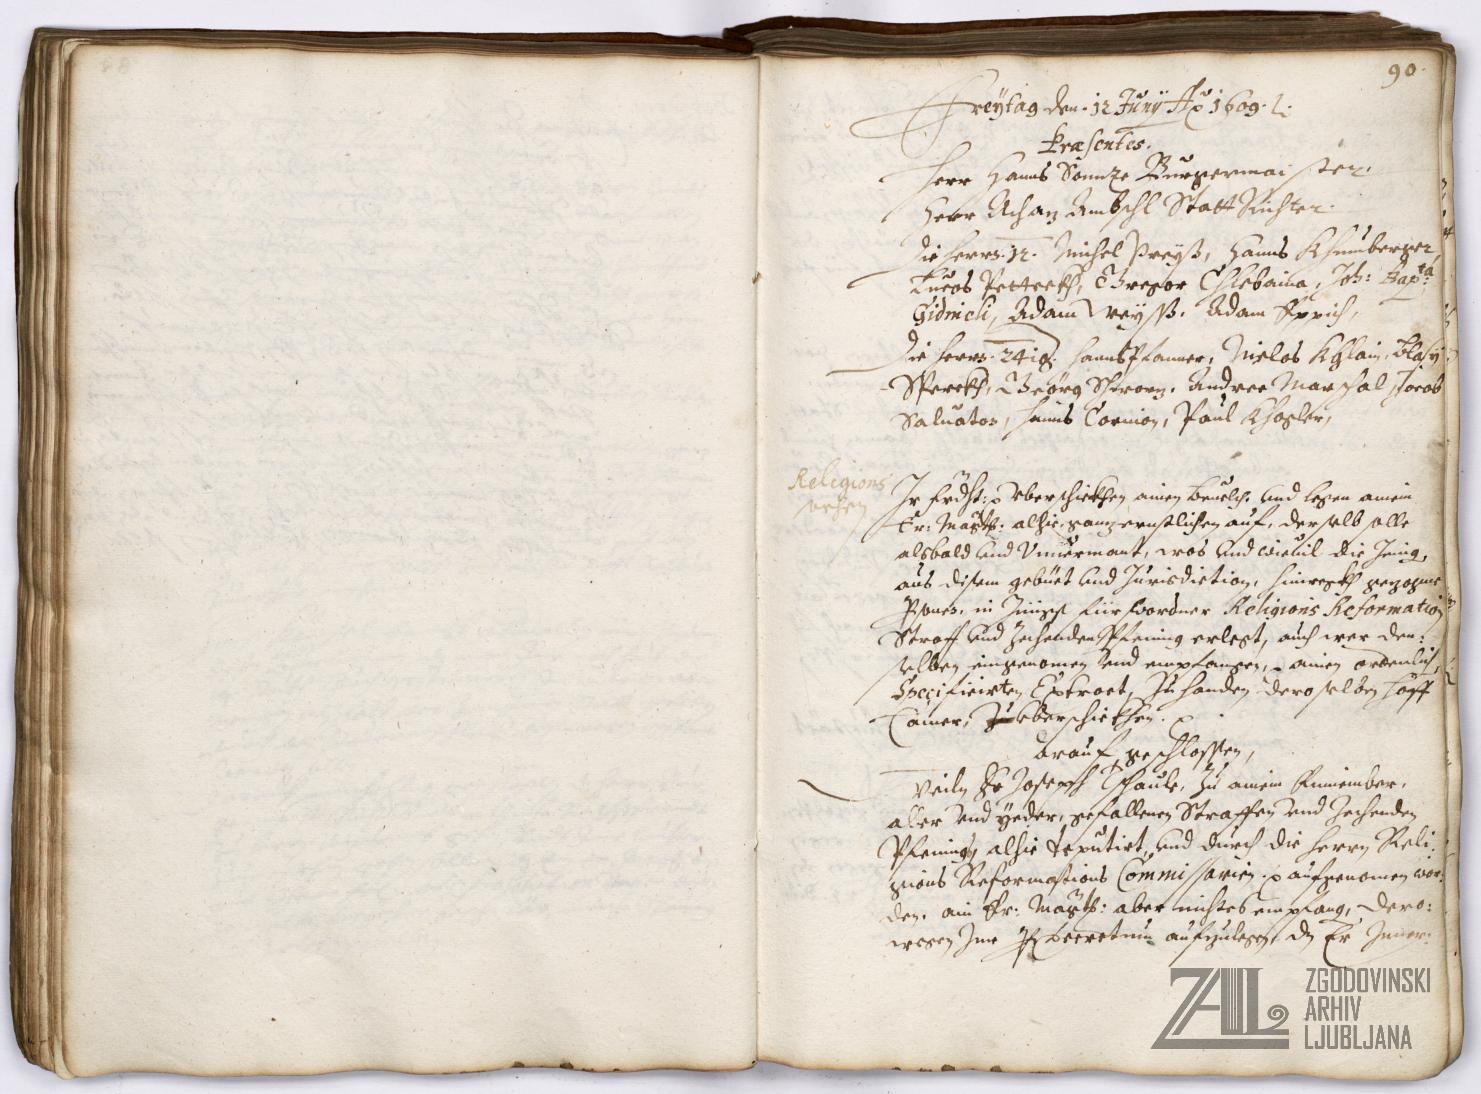 90.
Freÿtag den. 12 Junÿ Aō 1609.
Præsentes.
Herr Hanns Sonnze Burgermaister.
Herr Achaz Ambschl Statt Richter.
Die Herrn. 12. Michel Preÿß, Hanns Khumberger
Lucas Gregor Chlebaina, Joh: Bapta:
Gidnieli, Adam Weÿß. Adam Eppich,
Die Herrn. 24ig. Hanns Pfanner, Niclas Khlain, Blasÿ
Geörg Andree Marschal, Jacob
Saluator, Hanns Cornion, Paul Khogler,
Religions
wesen
Ir Frdht: überschickhen ainen beuelch. und legen ainem
Er: Magth: alhie ganz ernstlichen auf, derselb solle
alsbald und vnuermant, was und wieuil die Jenig,
aus disem gebüet und Jurisdiction, hinwegkh gezogne
in fürfordner Religions Reformation
Straff und Zechenden Pfening erlegt, auch wer den:
selben eingenomen und empfangen, ainen ordenlich,
Specificierten Extract, zu handen deroselben Hoff
Camer, zu überschickhen.
Darauf geschlossen,
Weiln Hr Joseph Tschaule, zu ainem Einnember,
aller und ÿeder, gefallenen Straffen und Zechenden
Pfening, alhie deputirt, und durch die Herrn Reli:
gions Reformations Commissarien aufgenomen wor:
den. ain Er: Magth: aber nichtes empfang, Dero:
wegen Ime Decretum aufzulegen, dz Er Inner:
ZAL
ZGODOVINSKI
ARHIV
LJUBLJANA